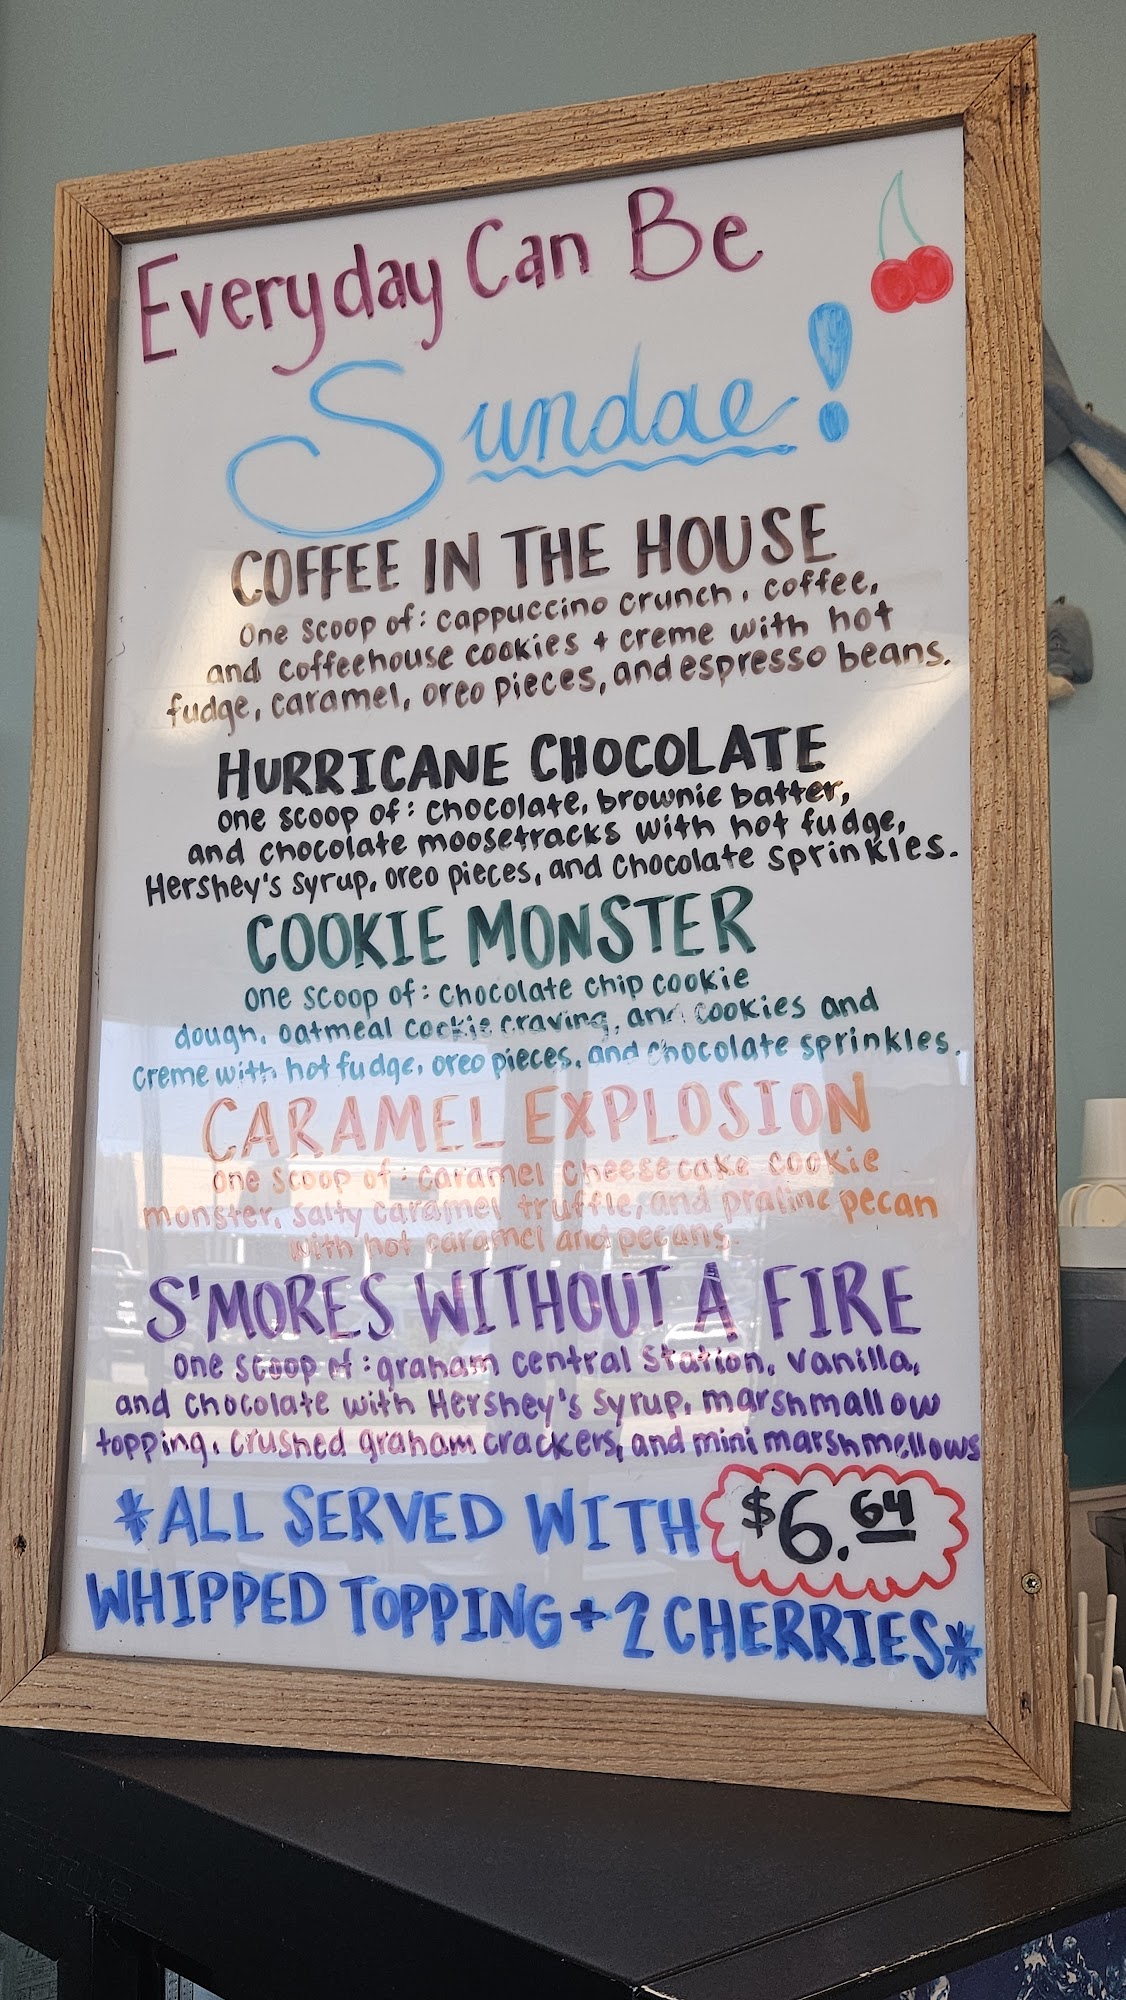 Everyday Can Be
Sundae!
COFFEE IN THE HOUSE
one scoop of: cappuccino crunch, coffee,
and coffeehouse cookies + creme with hot
fudge, caramel, oreo pieces, and espresso beans.
HURRICANE CHOCOLATE
one scoop of: chocolate, brownie batter,
and chocolate moosetracks with hot fudge,
Hershey's syrup, oreo pieces, and chocolate sprinkles.
COOKIE MONSTER
one scoop of: chocolate chip cookie
dough, oatmeal cookie craving, and cookies and
creme with hot fudge, oreo pieces, and chocolate sprinkles.
CARAMEL EXPLOSION
one scoop of: caramel cheesecake cookie
monster, salty caramel truffle, and praline pecan
with hot caramel and pecans.
S'MORES WITHOUT A FIRE
one scoop of: graham central station, vanilla,
and chocolate with Hershey's syrup, marshmallow
topping, crushed graham crackers, and mini marshmellows
*ALL SERVED WITH $6.64
WHIPPED TOPPING + 2 CHERRIES*